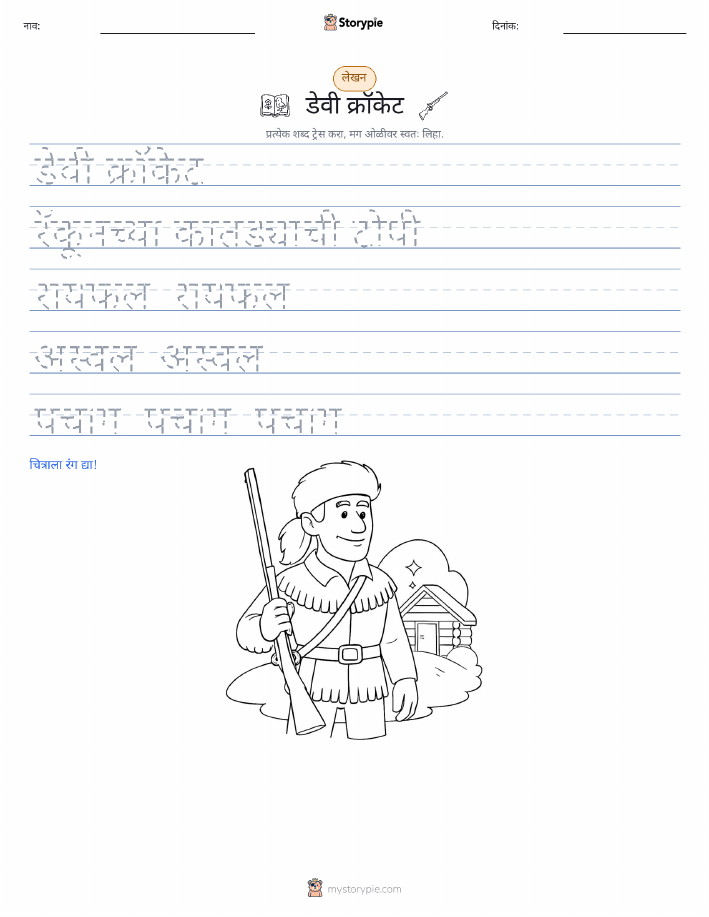 नाव:
Storypie
दिनांक:
लेखन
डेवी क्रॉकेट
प्रत्येक शब्द ट्रेस करा, मग ओळीवर स्वतः लिहा.
डेवी क्रॉकेट
रॅकूनच्या कातड्याची टोपी
रायफल रायफल
अस्वल अस्वल
पंचांग पंचांग पंचांग
चित्राला रंग द्या!
mystorypie.com